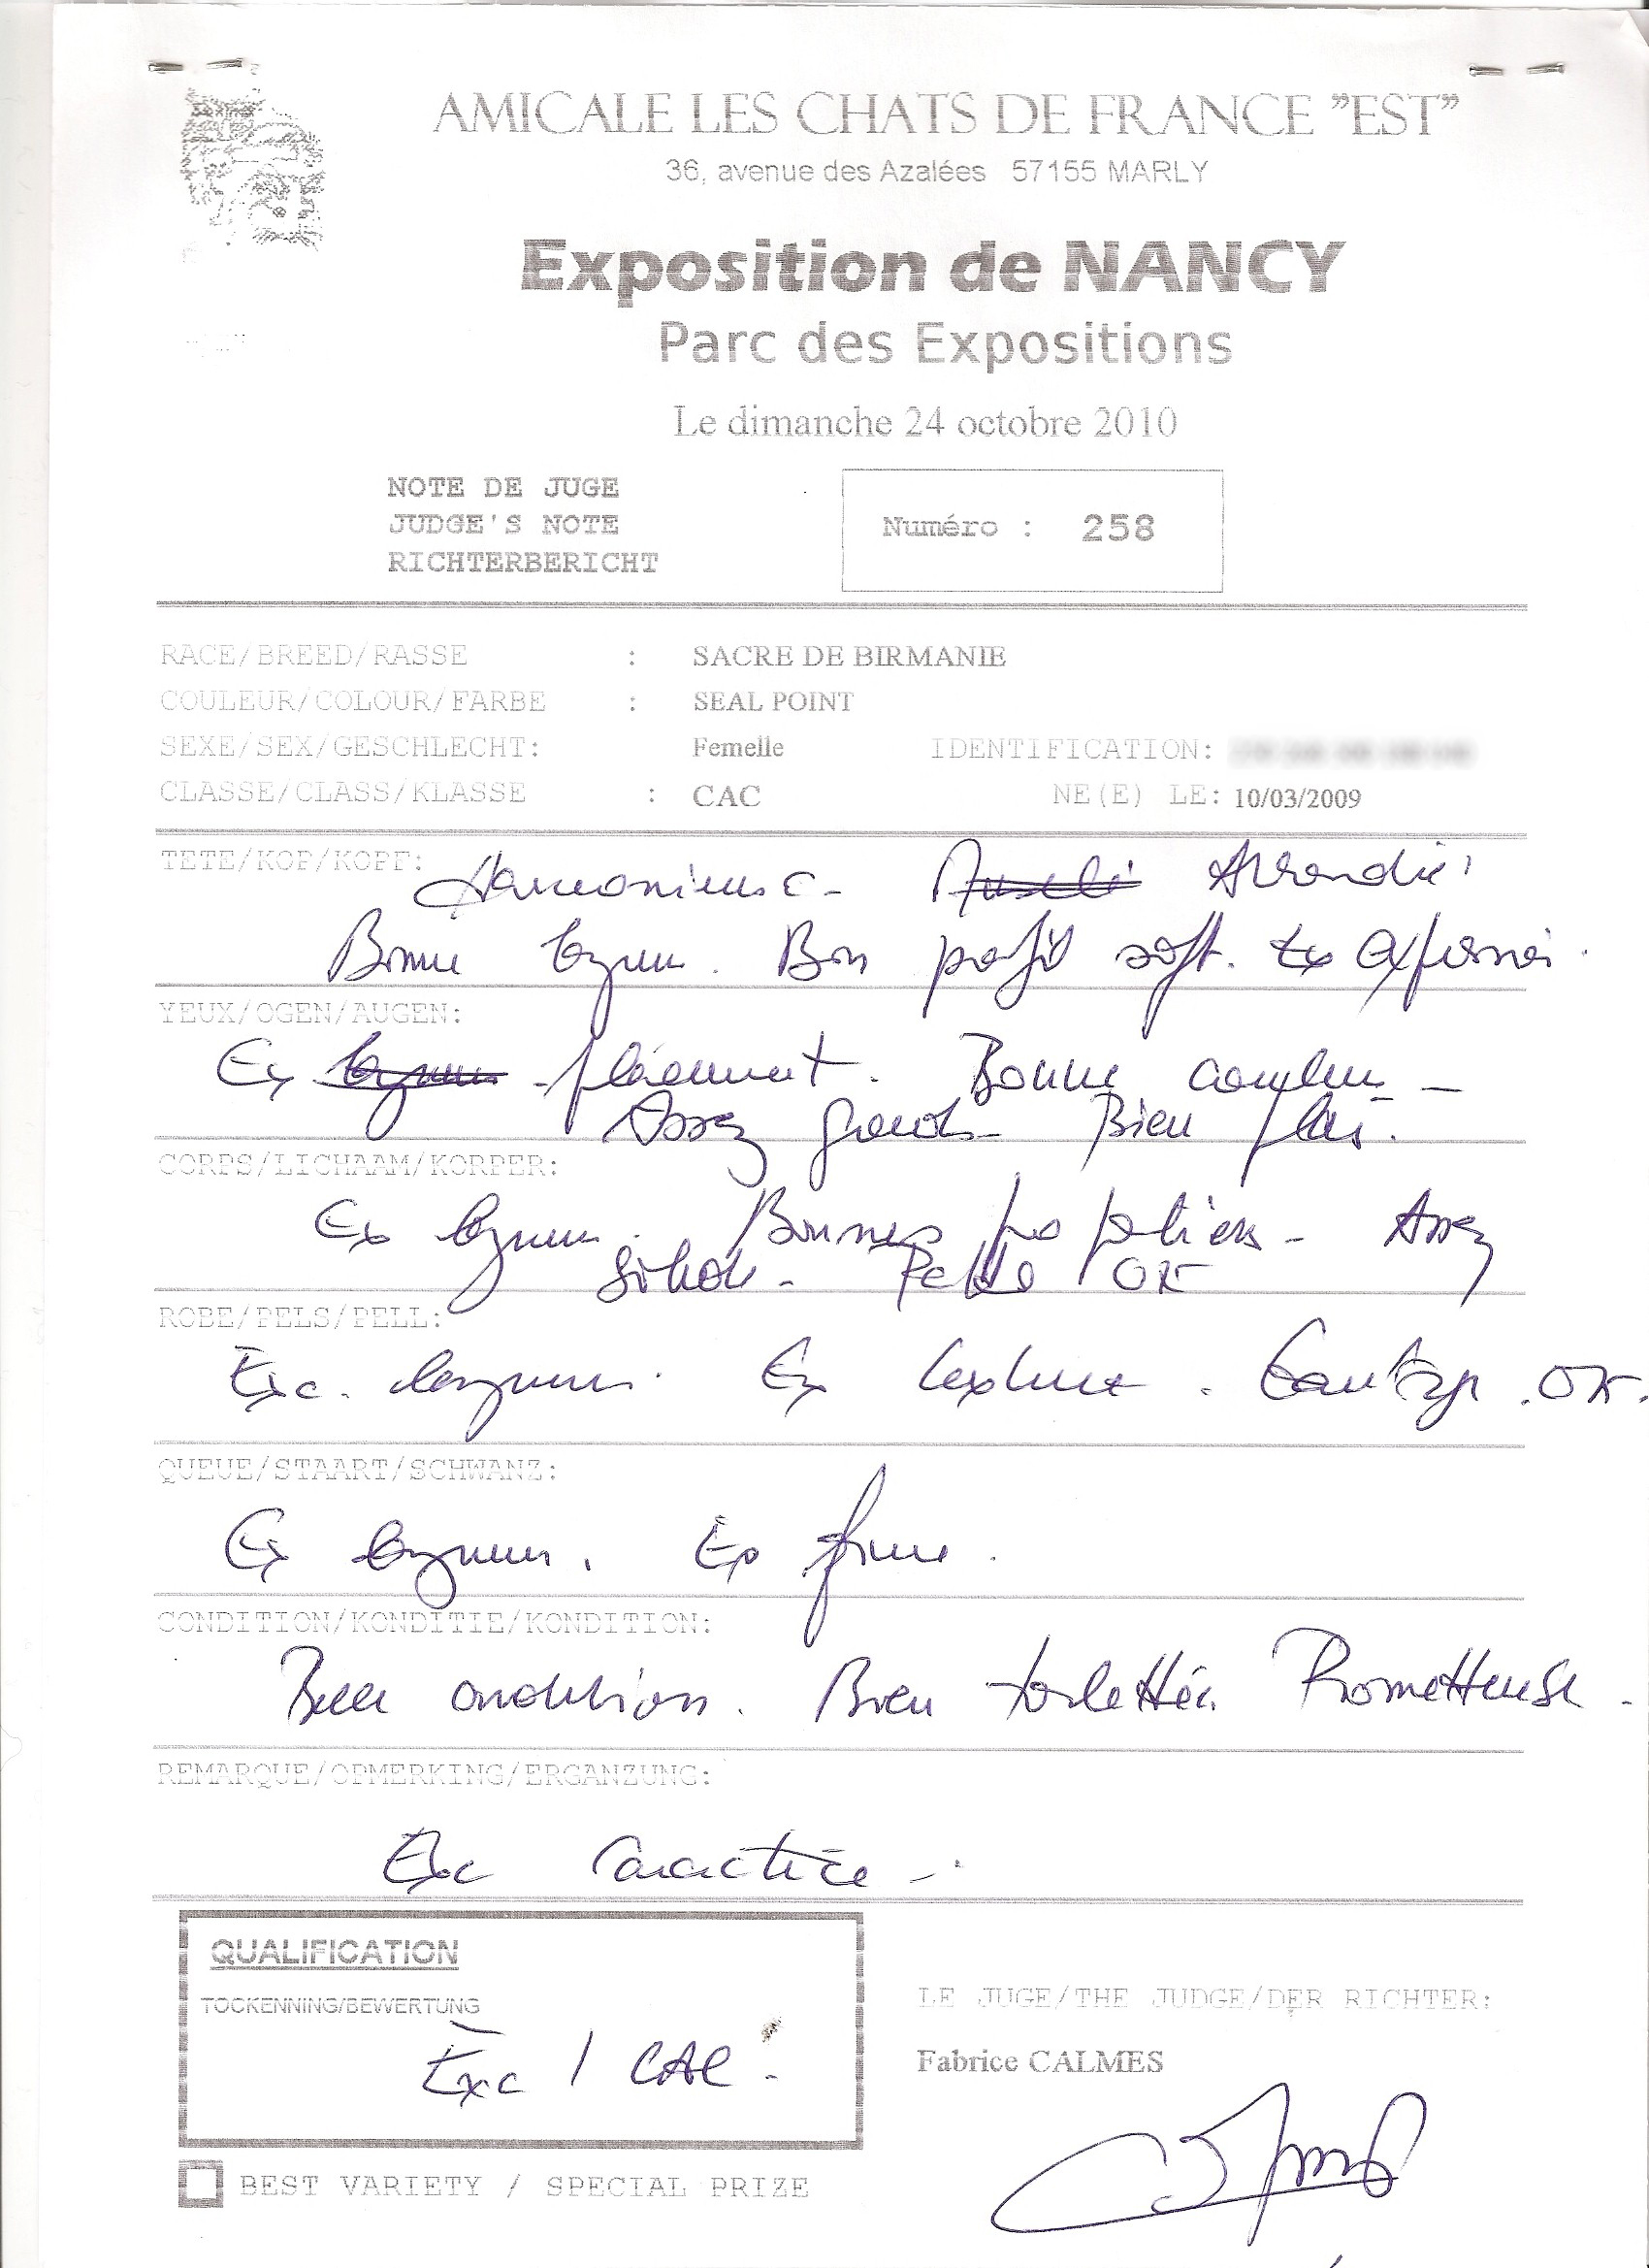 AMICALE LES CHATS DE FRANCE "EST"
36, avenue des Azalées 57155 MARLY
Exposition de NANCY
Parc des Expositions
Le dimanche 24 octobre 2010
NOTE DE JUGE
JUDGE'S NOTE
RICHTERBERICHT
Numéro : 258
RACE/BREED/RASSE : SACRE DE BIRMANIE
COULEUR/COLOUR/FARBE : SEAL POINT
SEXE/SEX/GESCHLECHT: Femelle IDENTIFICATION:
CLASSE/CLASS/KLASSE : CAC NE(E) LE: 10/03/2009
TETE/KOP/KOPF:
Harmonieuse - Arrondie
Bonne largeur. Bon profil soft.
YEUX/OGEN/AUGEN:
Ex placement. Bonne couleur -
Assez grands - Bien
CORPS/LICHAAM/KORPER:
Ex longueur. Bonnes proportions - Assez
solide - Patte OK
ROBE/PELS/PELL:
Exc. longueur. Ex texture. Gantage. OK.
QUEUE/STAART/SCHWANZ:
Ex longueur. Ex fournie.
CONDITION/KONDITIE/KONDITION:
Belle condition. Bien toilettée. Prometteuse.
REMARQUE/OPMERKING/ERGANZUNG:
Exc Caractère -
QUALIFICATION
TOCKENNING/BEWERTUNG
Exc 1 CAC.
LE JUGE/THE JUDGE/DER RICHTER:
Fabrice CALMES
BEST VARIETY / SPECIAL PRIZE